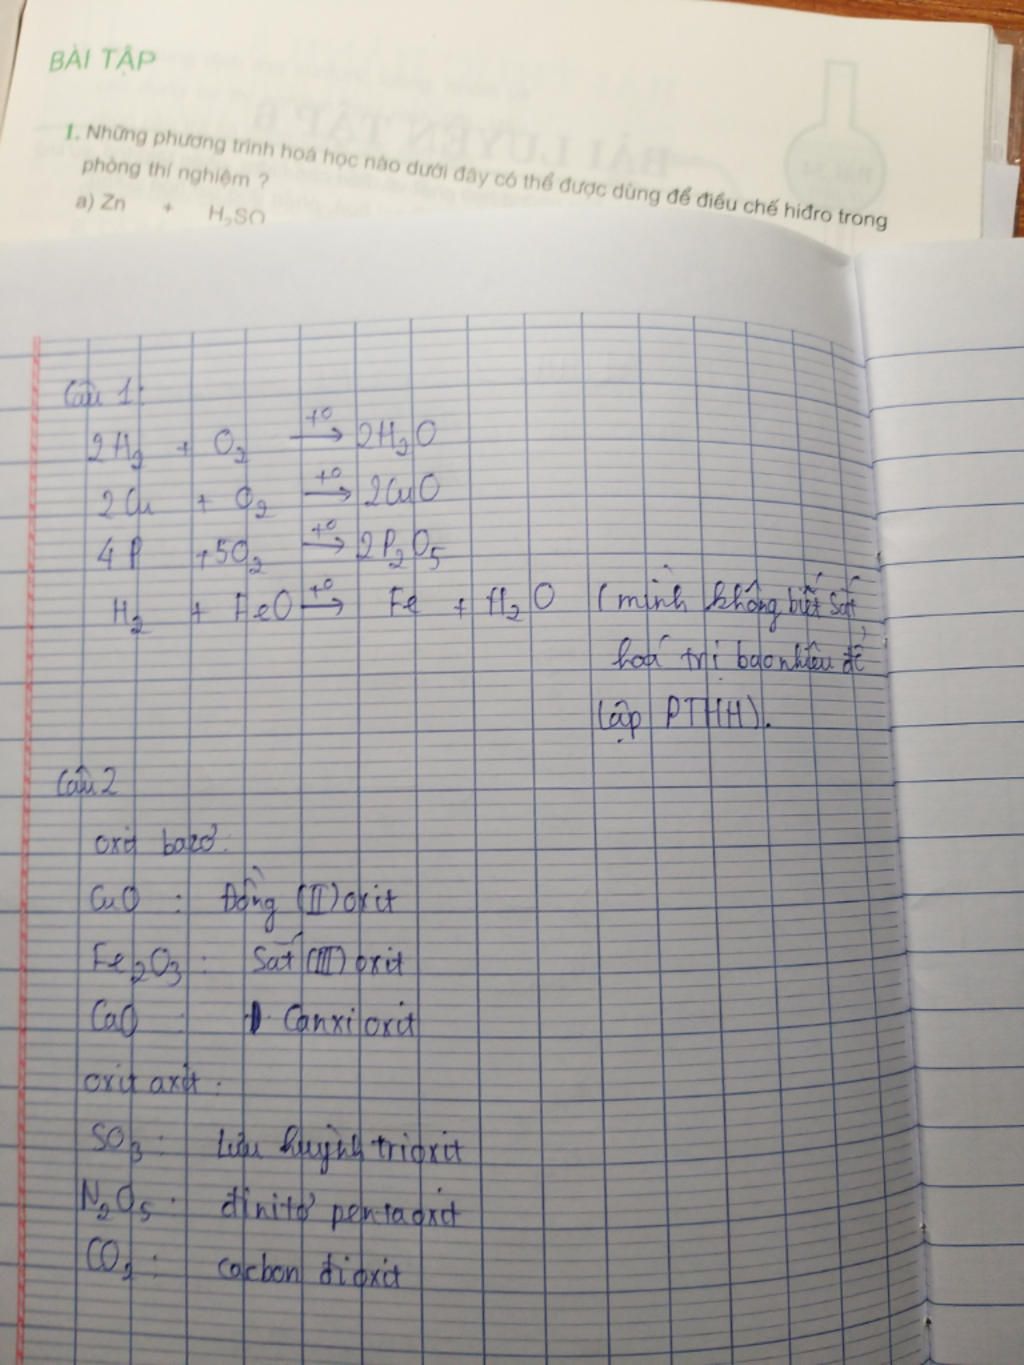 BÀI TẬP
1. Những phương trình hoá học nào dưới đây có thể được dùng để điều chế hiđro trong
phòng thí nghiệm ?
a) Zn + H₂SO
Câu 1:
2H₂ + O₂ →(t⁰) 2H₂O
2Cu + O₂ →(t⁰) 2CuO
4P + 5O₂ →(t⁰) 2P₂O₅
H₂ + FeO →(t⁰) Fe + H₂O (mình không biết Sắt
hoá trị bao nhiêu để
lập PTHH).
Câu 2
oxit bazơ:
CuO : Đồng (II) oxit
Fe₂O₃ : Sắt (III) oxit
CaO : Canxi oxit
oxit axit:
SO₃ : Lưu huỳnh trioxit
N₂O₅ : đinitơ pentaoxit
CO₂ : cacbon đioxit